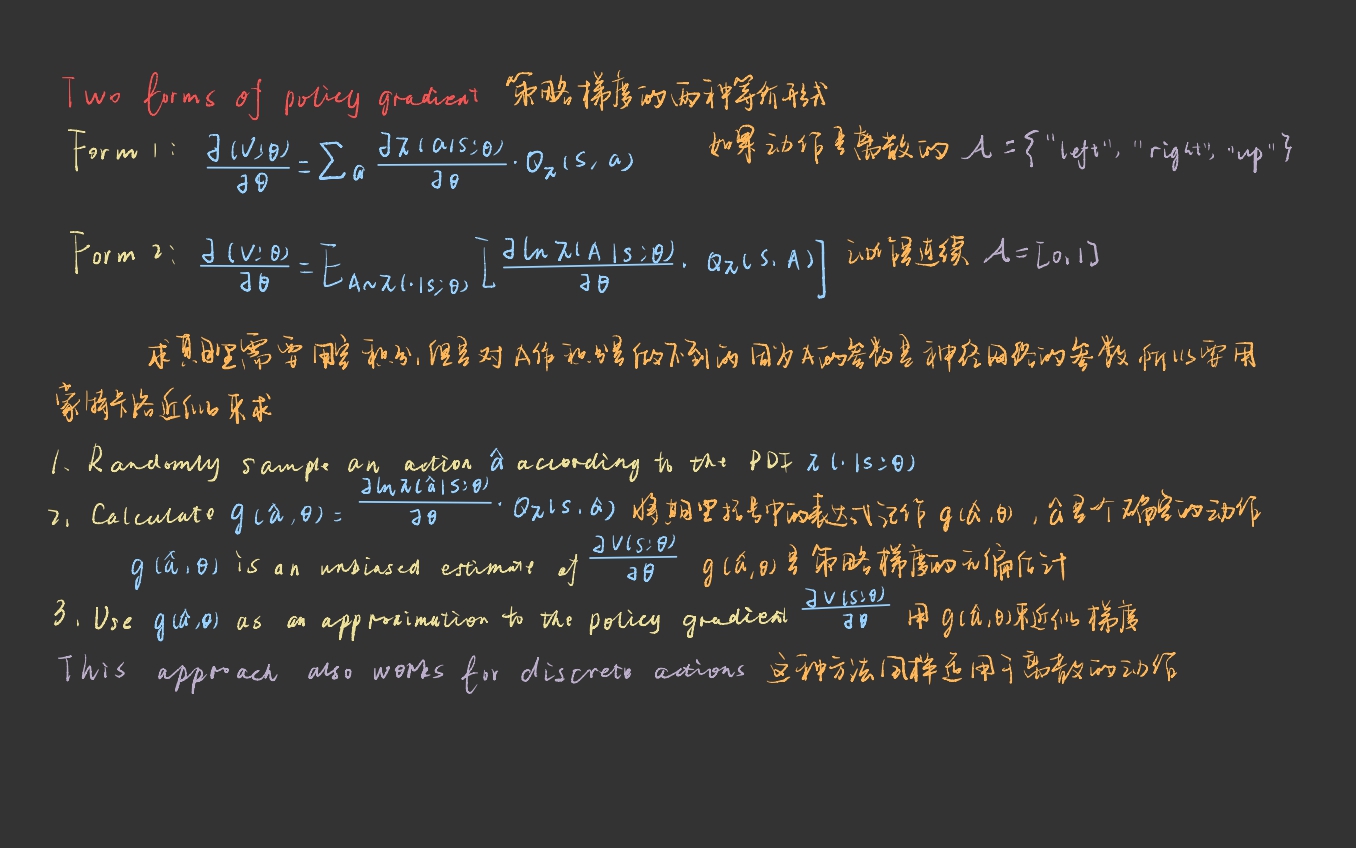 Two forms of policy gradient 策略梯度的两种等价形式
Form 1: ∂(V;θ)/∂θ = ∑a ∂π(a|s;θ)/∂θ · Qπ(s,a) 如果动作是离散的 A={"left", "right", "up"}
Form 2: ∂(V;θ)/∂θ = E A~π(·|s;θ) [∂ln π(A|s;θ)/∂θ · Qπ(s,A)] 连续 A=[0,1]
求期望需要用定积分,但是对A作积分是做不到的因为A的参数是神经网络的参数所以要用
蒙特卡洛近似来求
1. Randomly sample an action â according to the PDF π(·|s;θ)
2. Calculate g(â,θ)= ∂ln π(â|s;θ)/∂θ · Qπ(s,â) 将期望括号中的表达式记作 g(â,θ), â是个确定的动作
g(â,θ) is an unbiased estimate of ∂V(s;θ)/∂θ g(â,θ)是策略梯度的无偏估计
3. Use g(â,θ) as an approximation to the policy gradient ∂V(s;θ)/∂θ 用 g(â,θ)来近似梯度
This approach also works for discrete actions 这种方法同样适用于离散的动作